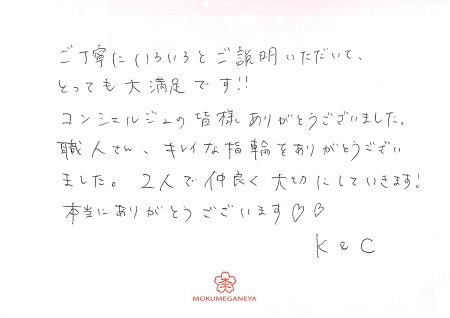 ご丁寧にいろいろとご説明いただいて、
とっても大満足です!!
コンシェルジュの皆様ありがとうございました。
職人さん、キレイな指輪をありがとうござい
ました。2人で仲良く大切にしていきます!
本当にありがとうございます♡♡
K & C
MOKUMEGANEYA